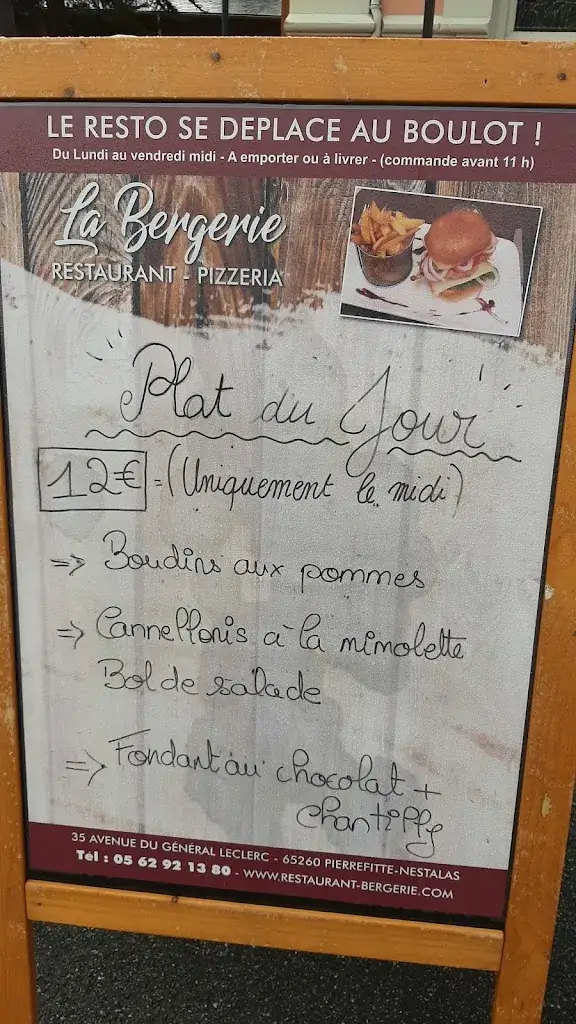 LE RESTO SE DEPLACE AU BOULOT !
Du Lundi au vendredi midi - A emporter ou à livrer - (commande avant 11 h)
La Bergerie
RESTAURANT - PIZZERIA
Plat du Jour
12€ = (Uniquement le midi)
=> Boudins aux pommes
=> Cannellonis à la mimolette
Bol de salade
=> Fondant au chocolat +
chantilly
35 AVENUE DU GÉNÉRAL LECLERC - 65260 PIERREFITTE-NESTALAS
Tél : 05 62 92 13 80 - WWW.RESTAURANT-BERGERIE.COM